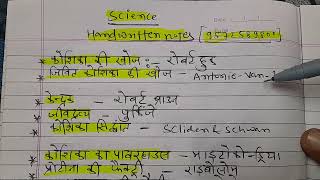 Science
Handwritten notes
* कोशिका की खोज :- रोबर्ट हुक
जिवित कोशिका की खोज - Antonie-van-
* केन्द्रक - रोबर्ट ब्राउन
* जीवद्रव्य - पुर्किंजे
* कोशिका सिद्धांत - Scliden & schwan
* कोशिका का पावरहाउस - माइटोकॉन्ड्रिया
* प्रोटीन की फैक्ट्री - राइबोसोम